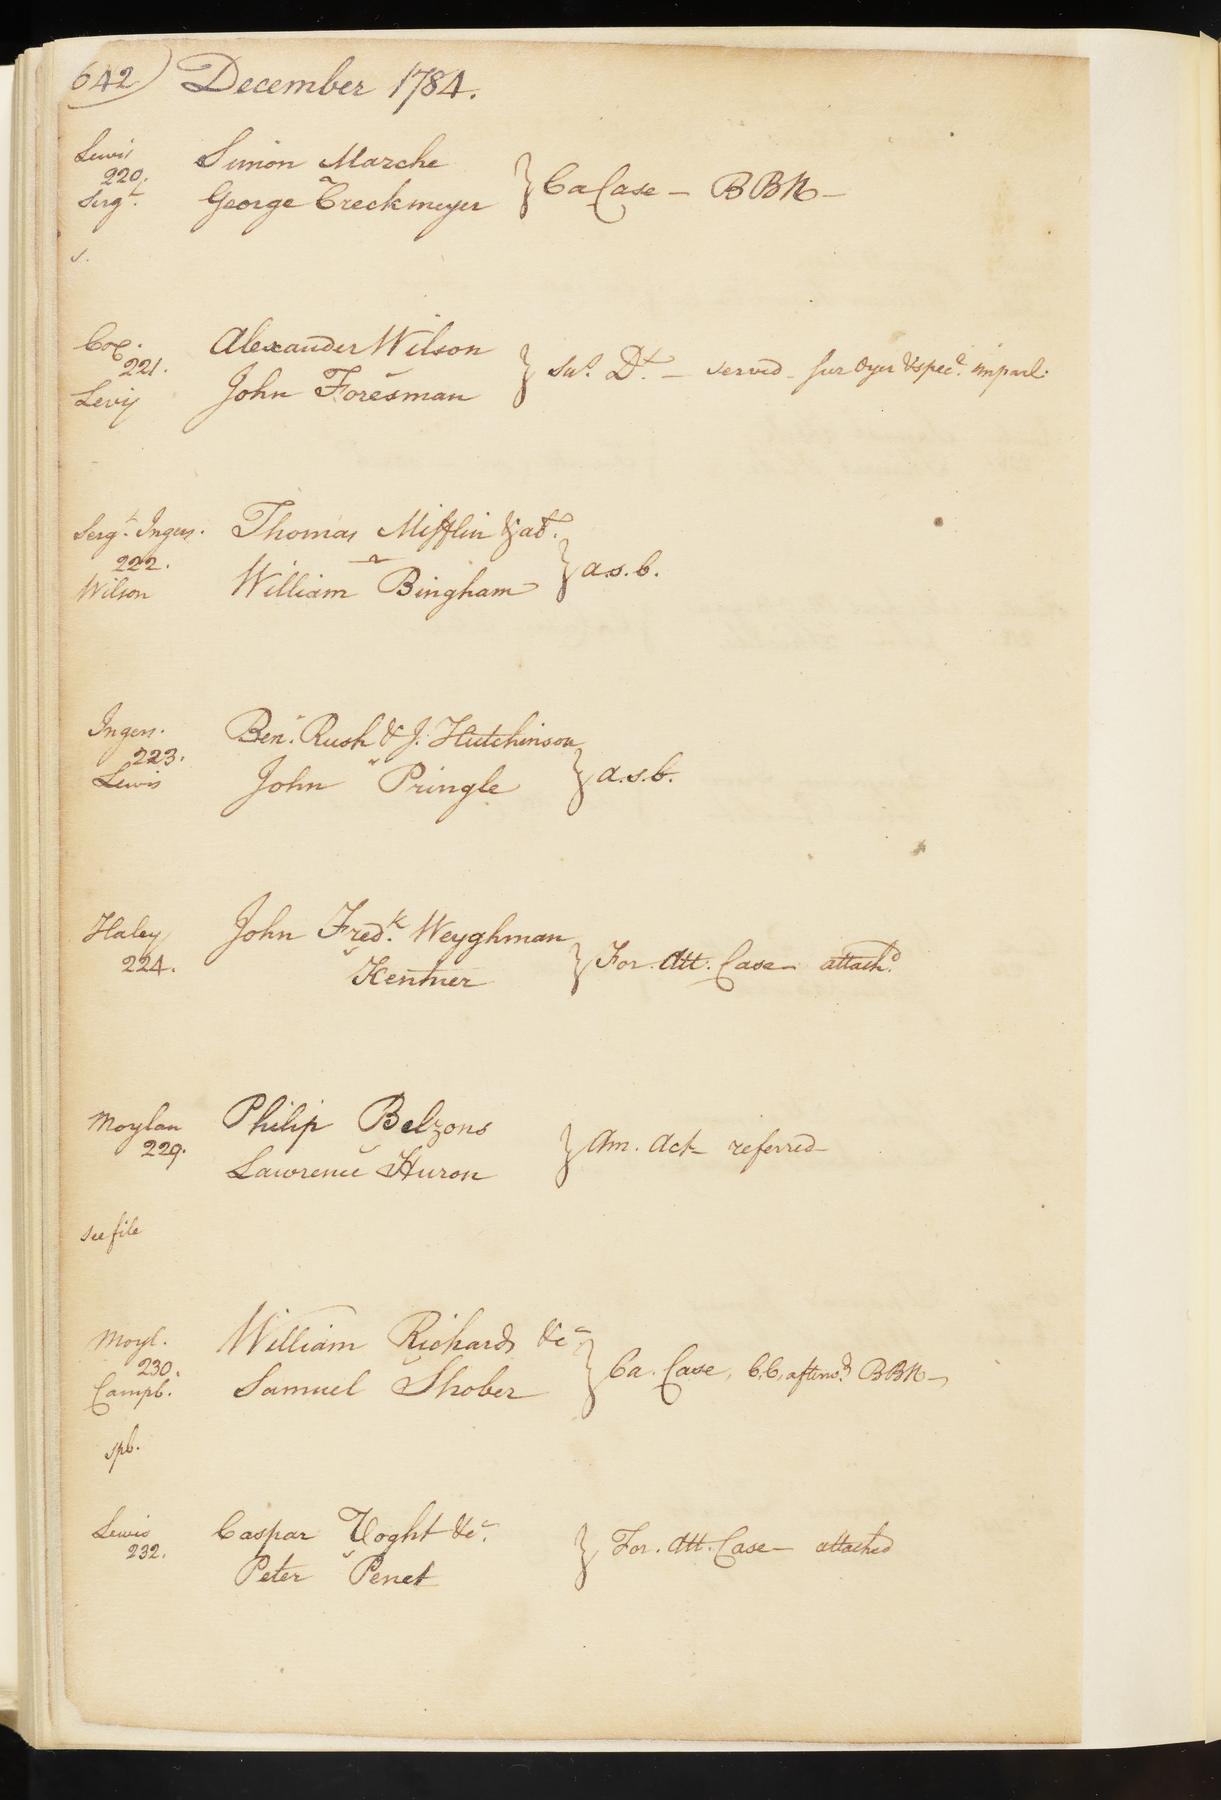 642) December 1784.
Lewis
220.
Sergt.
s.
Simon Marche
v
George Creckmeyer
} Ca Case — B B R —
Cox.
221.
Levy
Alexander Wilson
v
John Foresman
} Sus. Dt. — served - sur Oyer & specl. imparl.
Sergt. Ingers.
222.
Wilson
Thomas Mifflin & al.
v
William Bingham
} a.s.b.
Ingers.
223.
Lewis
Benn. Rush & J. Hutchinson
v
John Pringle
} a.s.b.
Haley
224.
John Fredk. Weyghman
v
Kentner
} For. Att. Case — attachd.
Moylan
229.
see file
Philip Belzons
v
Lawrence Huron
} Am. Act — referred —
Moyl.
230.
Campbl.
spb.
William Richards &c
v
Samuel Shober
} Ca. Case, C.C. afterwd. BBR —
Lewis
232.
Caspar Voght &c.
v
Peter Penet
} For. Att. Case — attached